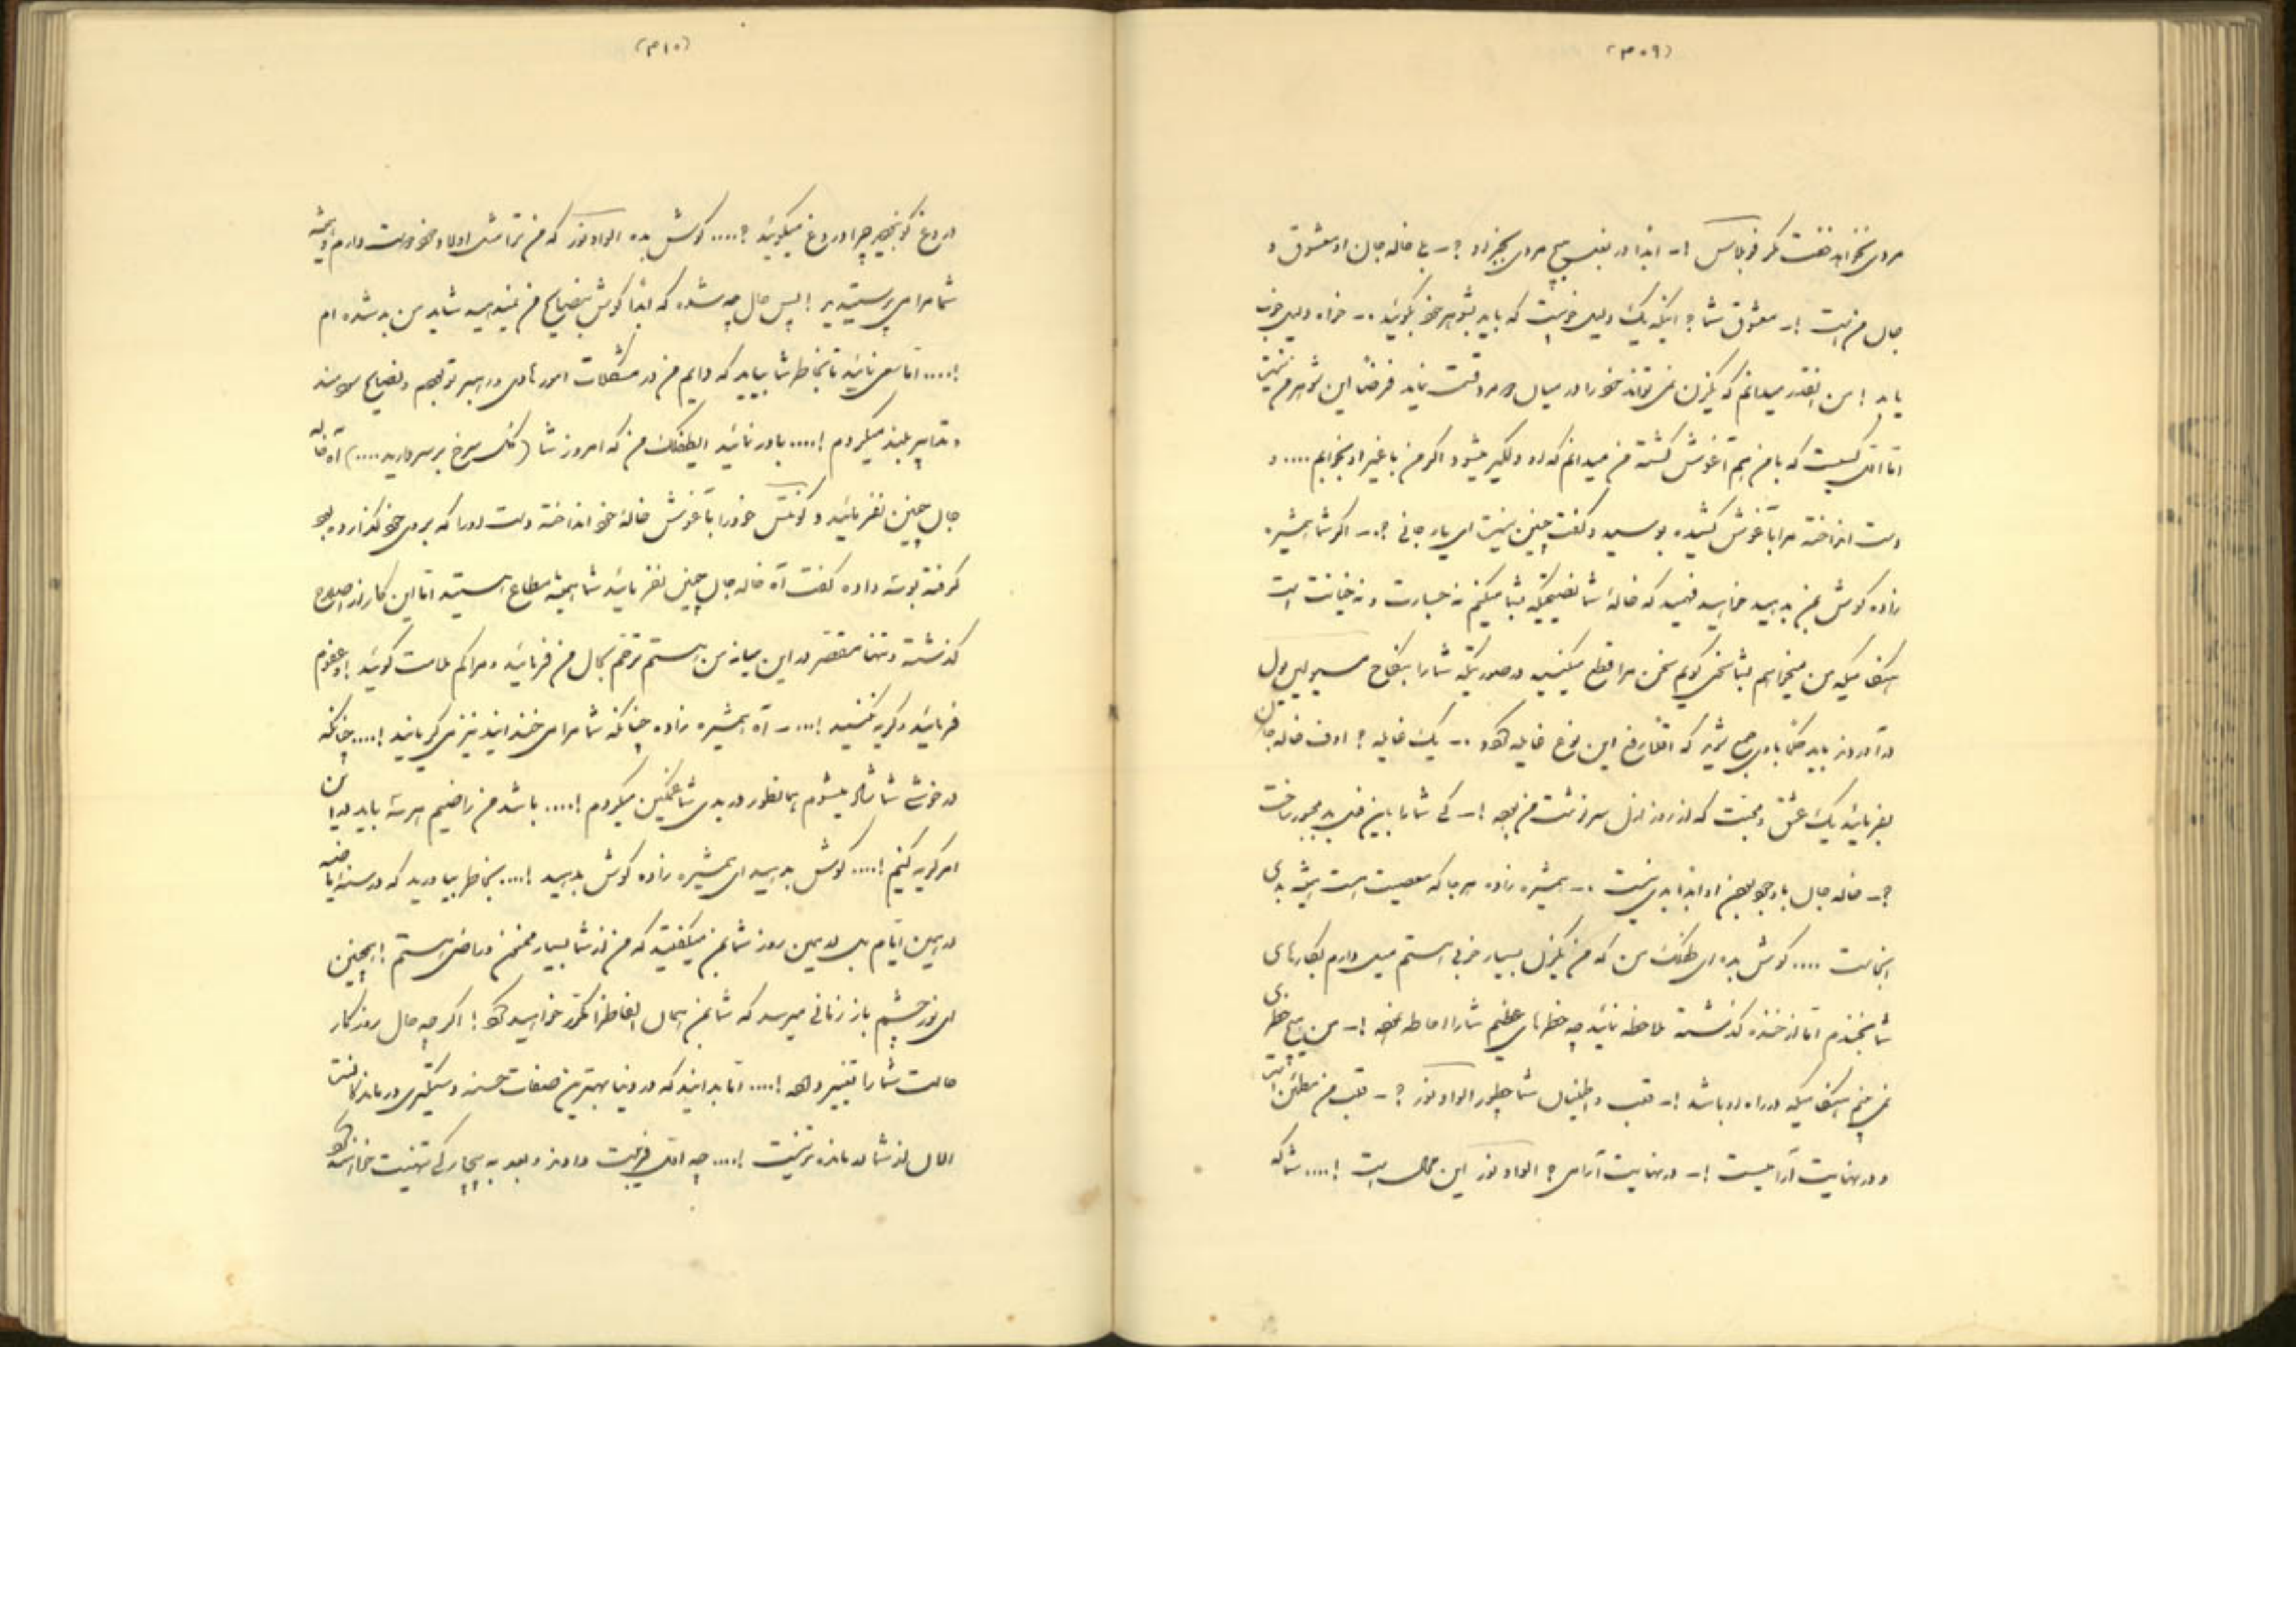 (۳۰۹)
مردی نخواهد خفت مگر فرطاس !- ابدا در بغل هیچ مردی بجز او ؟- بی خاله جان او معشوق و
جان من است !- معشوق شما ؟ اینکه یک دلیل خوبیست که باید بشوهر خود بگوئید .- خواه دلیل خوب
یا بد ! من اینقدر میدانم که یکزن نمی تواند خود را در میان دو مرد قسمت نماید فرضاً این شوهر من نیست
اما آنکسیست که با من هم آغوش گشته من میدانم که او دلگیر میشود اگر من با غیر او بخوابم .... و
دست انداخته مرا بآغوش کشیده بوسید و گفت چنین نیست ای یار جانی ؟.- اگر شما همشیره
زاده گوش بمن بدهید خواهید فهمید که خالهٔ شما نصیحتیکه بشما میکنم نه خسارت و نه خیانت است
هنگامیکه من میخواهم بشما سخن گویم سخن مرا قطع میکنید در صورتیکه شما را بنکاح مسیو لیل بول
در آوردند باید حکماً با وی جمع شوید که اقلاً رفع این نوع غایله شود .- یک غایله ؟ اوف خاله جان
بفرمائید یک عشق و محبت که از روز ازل سرنوشت من بود !- کی شما را باین فعل بد مجبور ساخت
؟- خاله جان با وجود بودن او ابدا بدی نیست .- همشیره زاده هر جا که معصیت است همیشه بدی
آنجاست .... گوش بده ای طفلک من که من یکزن بسیار خوبی هستم میل دارم بکارهای
شما بخندم اما از خنده گذشته ملاحظه نمائید چه خطرهای عظیم شما را احاطه نموده !- من هیچ خطری
نمی بینم هنگامیکه در راه او باشد !- قلب و اطمینان شما چطور الوادونز ؟- قلب من مطمئن است
و در نهایت آرامیست !- در نهایت آرامی ؟ الوادونز این محال است !.... شما که
(۳۱۰)
دروغ گو نبودید چرا دروغ میگوئید ؟.... گوش بده الوادونز که من ترا مثل اولاد خود دوست دارم و همیشه
شما مرا می پرستیدید ! پس حال چه شده که ابداً گوش بنصایح من نمیدهید شاید من بد شده ام
!.... اما سعی نمائید تا بخاطر شما بیاید که دایم من در مشکلات امور هادی و راهبر تو بودم و نصایح سودمند
و تدابیر بلند میکردم !.... باور نمائید ایطفلک من که امروز شما (کلک سرخ بر سر دارید ....) آه خاله
جان چنین نفرمائید و کونتس خود را بآغوش خالهٔ خود انداخته دست او را که بر روی خود گذارده بود
گرفته بوسه داده گفت آه خاله جان چنین نفرمائید شما همیشه مطاع هستید اما این کار از اصلاح
گذشته و تنها مقصر در این میانه من هستم ترحم بحال من فرمائید و مرا کم ملامت گوئید ! و عفوم
فرمائید و گریه نکنید !... - آه همشیره زاده چنانکه شما مرا می خندانید نیز می گریانید !.... چنانکه
در خوشی شما شاد میشوم همانطور در بدی شما غمگین میگردم !.... باشد من راضیم هر سه باید در این
امر گریه کنیم !.... گوش بدهید ای همشیره زاده گوش بدهید !.... بخاطر بیاورید که در سنهٔ ماضیه
در همین ایام بل در همین روز شما بمن میگفتید که من از شما بسیار ممنون و راضی هستم ! همچنین
ای نور چشم باز زمانی میرسد که شما بمن همان الفاظ را مکرر خواهید نمود ! اگر چه حال روزگار
حالت شما را تغییر داده !.... اما بدانید که در دنیا بهترین صفات حسنه دستگیری درماندگانست
الان از شما درمانده تر نیست !.... چه اول فریبت دادند و بعد به بیچارگی تهنیت خواهند نمود